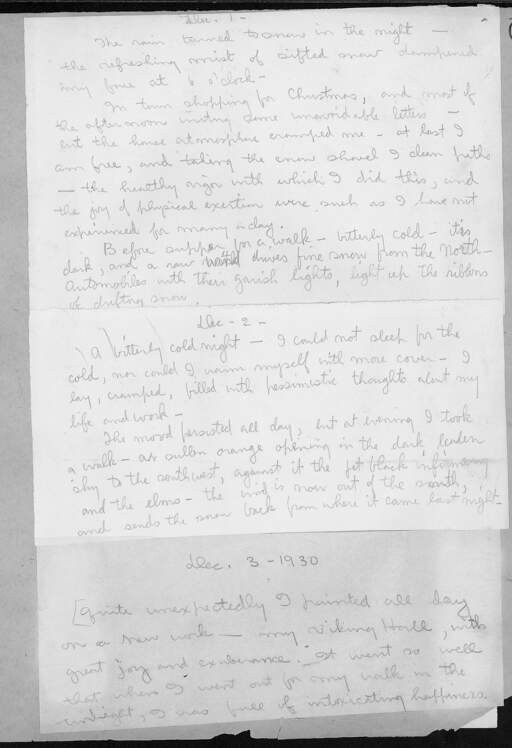 Dec. 1 -
The rain turned to snow in the night —
the refreshing mist of sifted snow dampened
my face at 6 o'clock -
In town shopping for Christmas, and most of
the afternoon writing some unavoidable letters —
but the house atmosphere cramped me - at last I
am free, and taking the snow shovel I clean paths
— the healthy vigor with which I did this, and
the joy of physical exertion were such as I have not
experienced for many a day.
Before supper for a walk - bitterly cold - it is
dark, and a raw wind drives fine snow from the North -
Automobiles with their garish lights, light up the ribbons
of drifting snow.
Dec - 2 -
A bitterly cold night — I could not sleep for the
cold, nor could I warm myself with more cover - I
lay, cramped, filled with pessimistic thoughts about my
life and work -
The mood persisted all day, but at evening I took
a walk - a sullen orange opening in the dark leaden
sky to the southwest, against it the jet black infirmary
and the elms - the wind is now out of the south,
and sends the snow back from where it came last night -
Dec. 3 - 1930
[Quite unexpectedly I painted all day
on a new work — my Viking Hall, with
great joy and exuberance. It went so well
that when I went out for my walk in the
midnight, I was full of intoxicating happiness